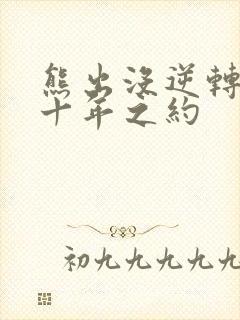 熊出没逆轉
十年之約
初九九九九九